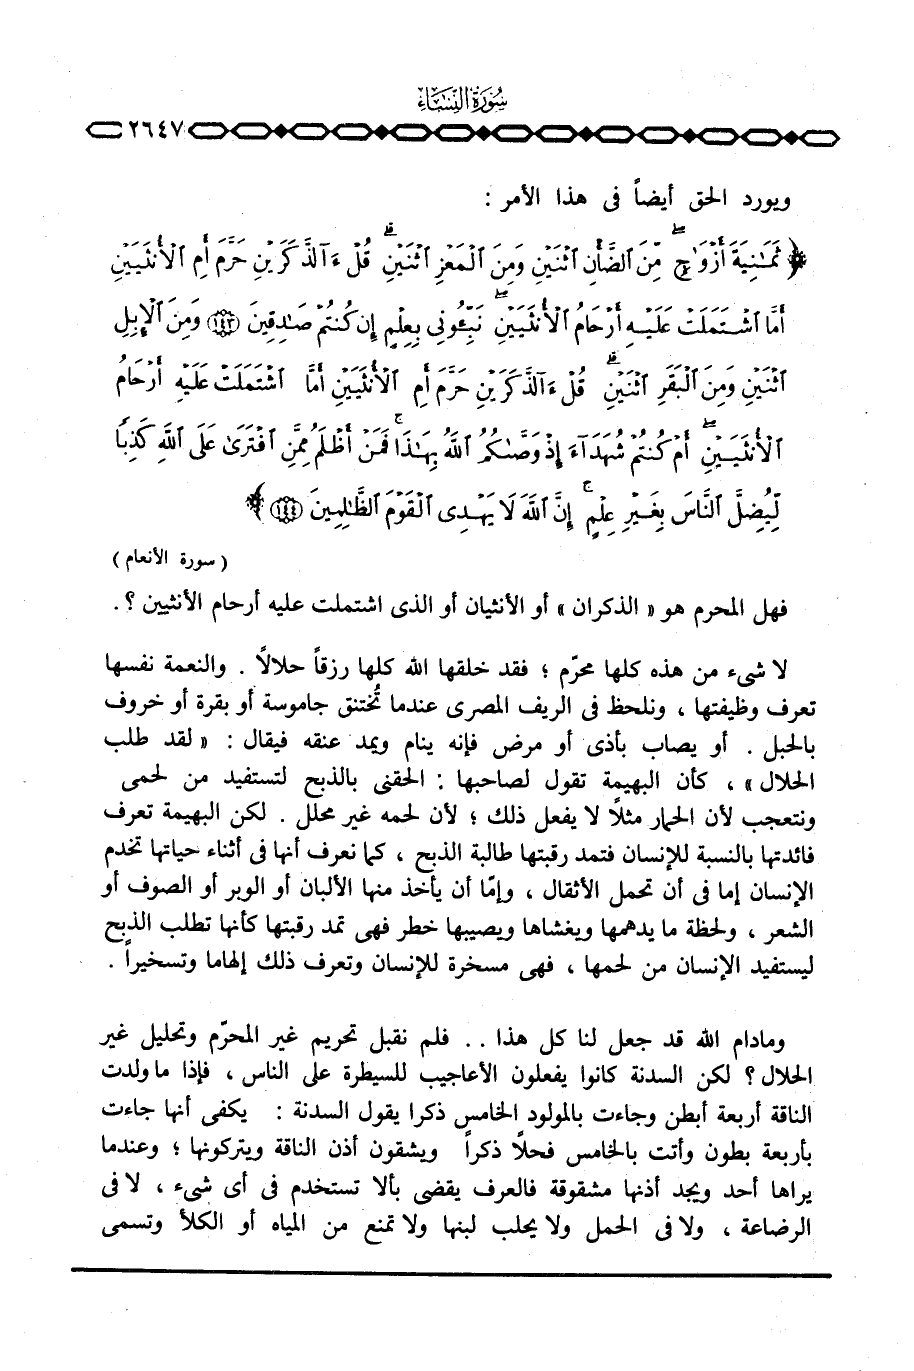 سورة النساء
٢٦٤٧
ويورد الحق أيضاً فى هذا الأمر :
﴿ ثَمَٰنِيَةَ أَزْوَٰجٍ ۖ مِّنَ ٱلضَّأْنِ ٱثْنَيْنِ وَمِنَ ٱلْمَعْزِ ٱثْنَيْنِ ۗ قُلْ ءَآلذَّكَرَيْنِ حَرَّمَ أَمِ ٱلْأُنثَيَيْنِ
أَمَّا ٱشْتَمَلَتْ عَلَيْهِ أَرْحَامُ ٱلْأُنثَيَيْنِ ۖ نَبِّـُٔونِى بِعِلْمٍ إِن كُنتُمْ صَٰدِقِينَ ﴿١٤٣﴾ وَمِنَ ٱلْإِبِلِ
ٱثْنَيْنِ وَمِنَ ٱلْبَقَرِ ٱثْنَيْنِ ۗ قُلْ ءَآلذَّكَرَيْنِ حَرَّمَ أَمِ ٱلْأُنثَيَيْنِ أَمَّا ٱشْتَمَلَتْ عَلَيْهِ أَرْحَامُ
ٱلْأُنثَيَيْنِ ۖ أَمْ كُنتُمْ شُهَدَآءَ إِذْ وَصَّىٰكُمُ ٱللَّهُ بِهَٰذَا ۚ فَمَنْ أَظْلَمُ مِمَّنِ ٱفْتَرَىٰ عَلَى ٱللَّهِ كَذِبًا
لِّيُضِلَّ ٱلنَّاسَ بِغَيْرِ عِلْمٍ ۚ إِنَّ ٱللَّهَ لَا يَهْدِى ٱلْقَوْمَ ٱلظَّٰلِمِينَ ﴿١٤٤﴾ ﴾
( سورة الأنعام )
فهل المحرم هو « الذكران » أو الأنثيان أو الذى اشتملت عليه أرحام الأنثيين ؟ .
لا شىء من هذه كلها محرّم ؛ فقد خلقها الله كلها رزقاً حلالاً . والنعمة نفسها
تعرف وظيفتها ، ونلحظ فى الريف المصرى عندما تُختنق جاموسة أو بقرة أو خروف
بالحبل . أو يصاب بأذى أو مرض فإنه ينام ويمد عنقه فيقال : « لقد طلب
الحلال » ، كأن البهيمة تقول لصاحبها : الحقنى بالذبح لتستفيد من لحمى
ونتعجب لأن الحمار مثلاً لا يفعل ذلك ؛ لأن لحمه غير محلل . لكن البهيمة تعرف
فائدتها بالنسبة للإنسان فتمد رقبتها طالبة الذبح ، كما نعرف أنها فى أثناء حياتها تخدم
الإنسان إما فى أن تحمل الأثقال ، وإمّا أن يأخذ منها الألبان أو الوبر أو الصوف أو
الشعر ، ولحظة ما يدهمها ويغشاها ويصيبها خطر فهى تمد رقبتها كأنها تطلب الذبح
ليستفيد الإنسان من لحمها ، فهى مسخرة للإنسان وتعرف ذلك إلهاما وتسخيراً .
ومادام الله قد جعل لنا كل هذا . . فلم نقبل تحريم غير المحرّم وتحليل غير
الحلال ؟ لكن السدنة كانوا يفعلون الأعاجيب للسيطرة على الناس ، فإذا ما ولدت
الناقة أربعة أبطن وجاءت بالمولود الخامس ذكرا يقول السدنة : يكفى أنها جاءت
بأربعة بطون وأتت بالخامس فحلاً ذكراً ويشقون أذن الناقة ويتركونها ؛ وعندما
يراها أحد ويجد أذنها مشقوقة فالعرف يقضى بألا تستخدم فى أى شىء ، لا فى
الرضاعة ، ولا فى الحمل ولا يحلب لبنها ولا تمنع من المياه أو الكلأ وتسمى